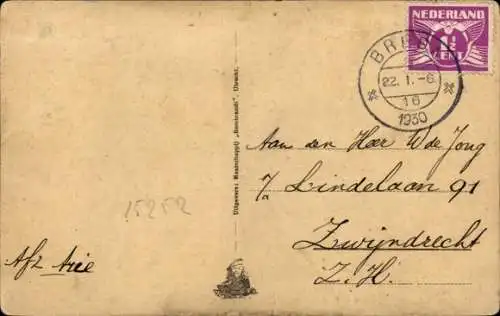 NEDERLAND
1½
CENT
BREDA
22. 1. -6
16
1930
Aan den Heer W de Jong
7a Lindelaan 91
Zwijndrecht
Z.H.
15252
Afz Arie
Uitgevers: Maatschappij „Rembrandt", Utrecht.